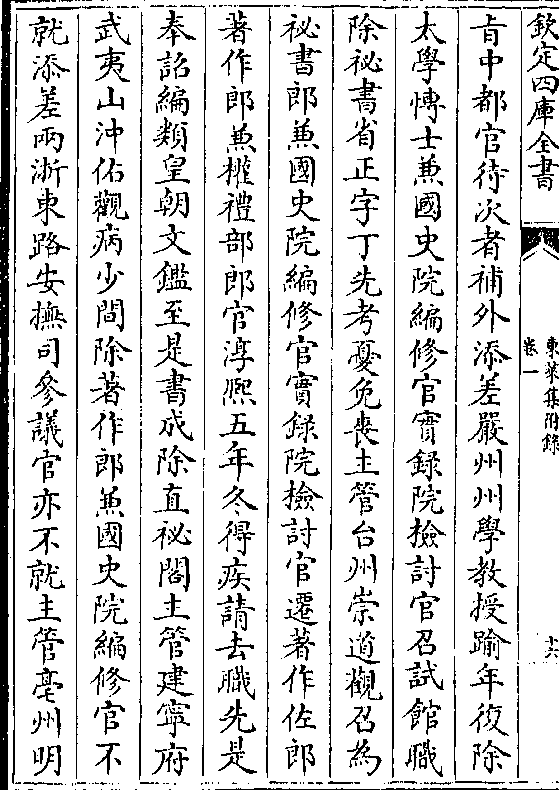 欽定四庫全書
東萊集附録
卷一
十六
㫖中都官待次者補外添差嚴州州學教授踰年復除
太學博士兼國史院編修官實録院檢討官召試館職
除祕書省正字丁先考憂免喪主管台州崇道觀召為
祕書郎兼國史院編修官實録院檢討官遷著作佐郎
著作郎兼權禮部郎官淳熈五年冬得疾請去職先是
奉詔編類皇朝文鑑至是書成除直祕閣主管建寧府
武夷山沖佑觀病少間除著作郎兼國史院編修官不
就添差兩浙東路安撫司參議官亦不就主管亳州明